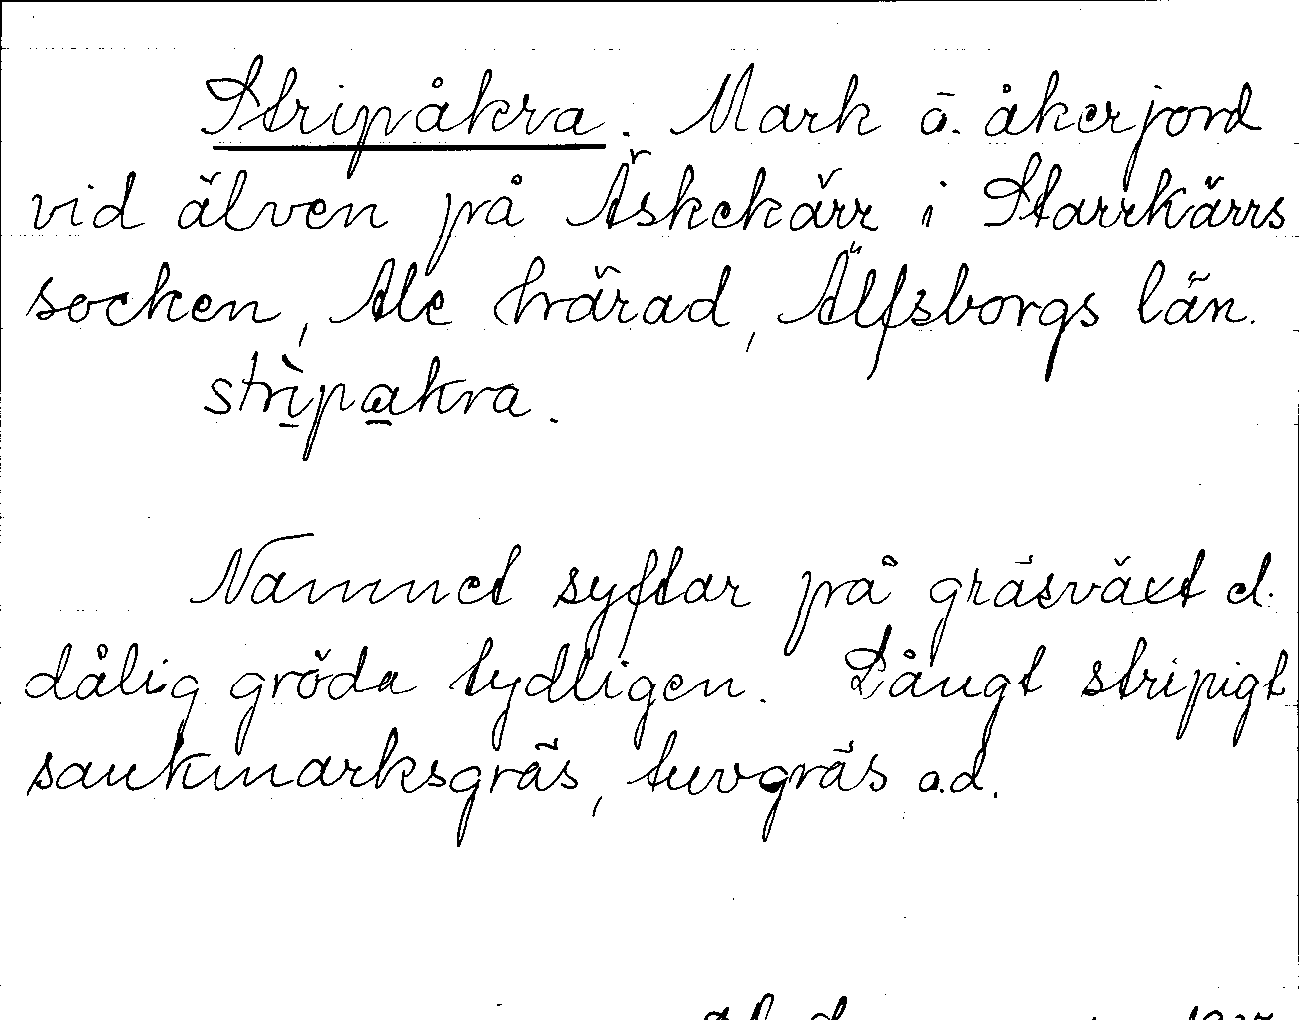 Stripåkra. Mark o. åkerjord
vid älven på Äskekärr i Starrkärrs
socken, Ale härad, Älfsborgs län.
strìpakra.
Namnet syftar på gräsväxt el.
dålig gröda tydligen. Långt stripigt
sankmarksgräs, tuvgräs o.d.